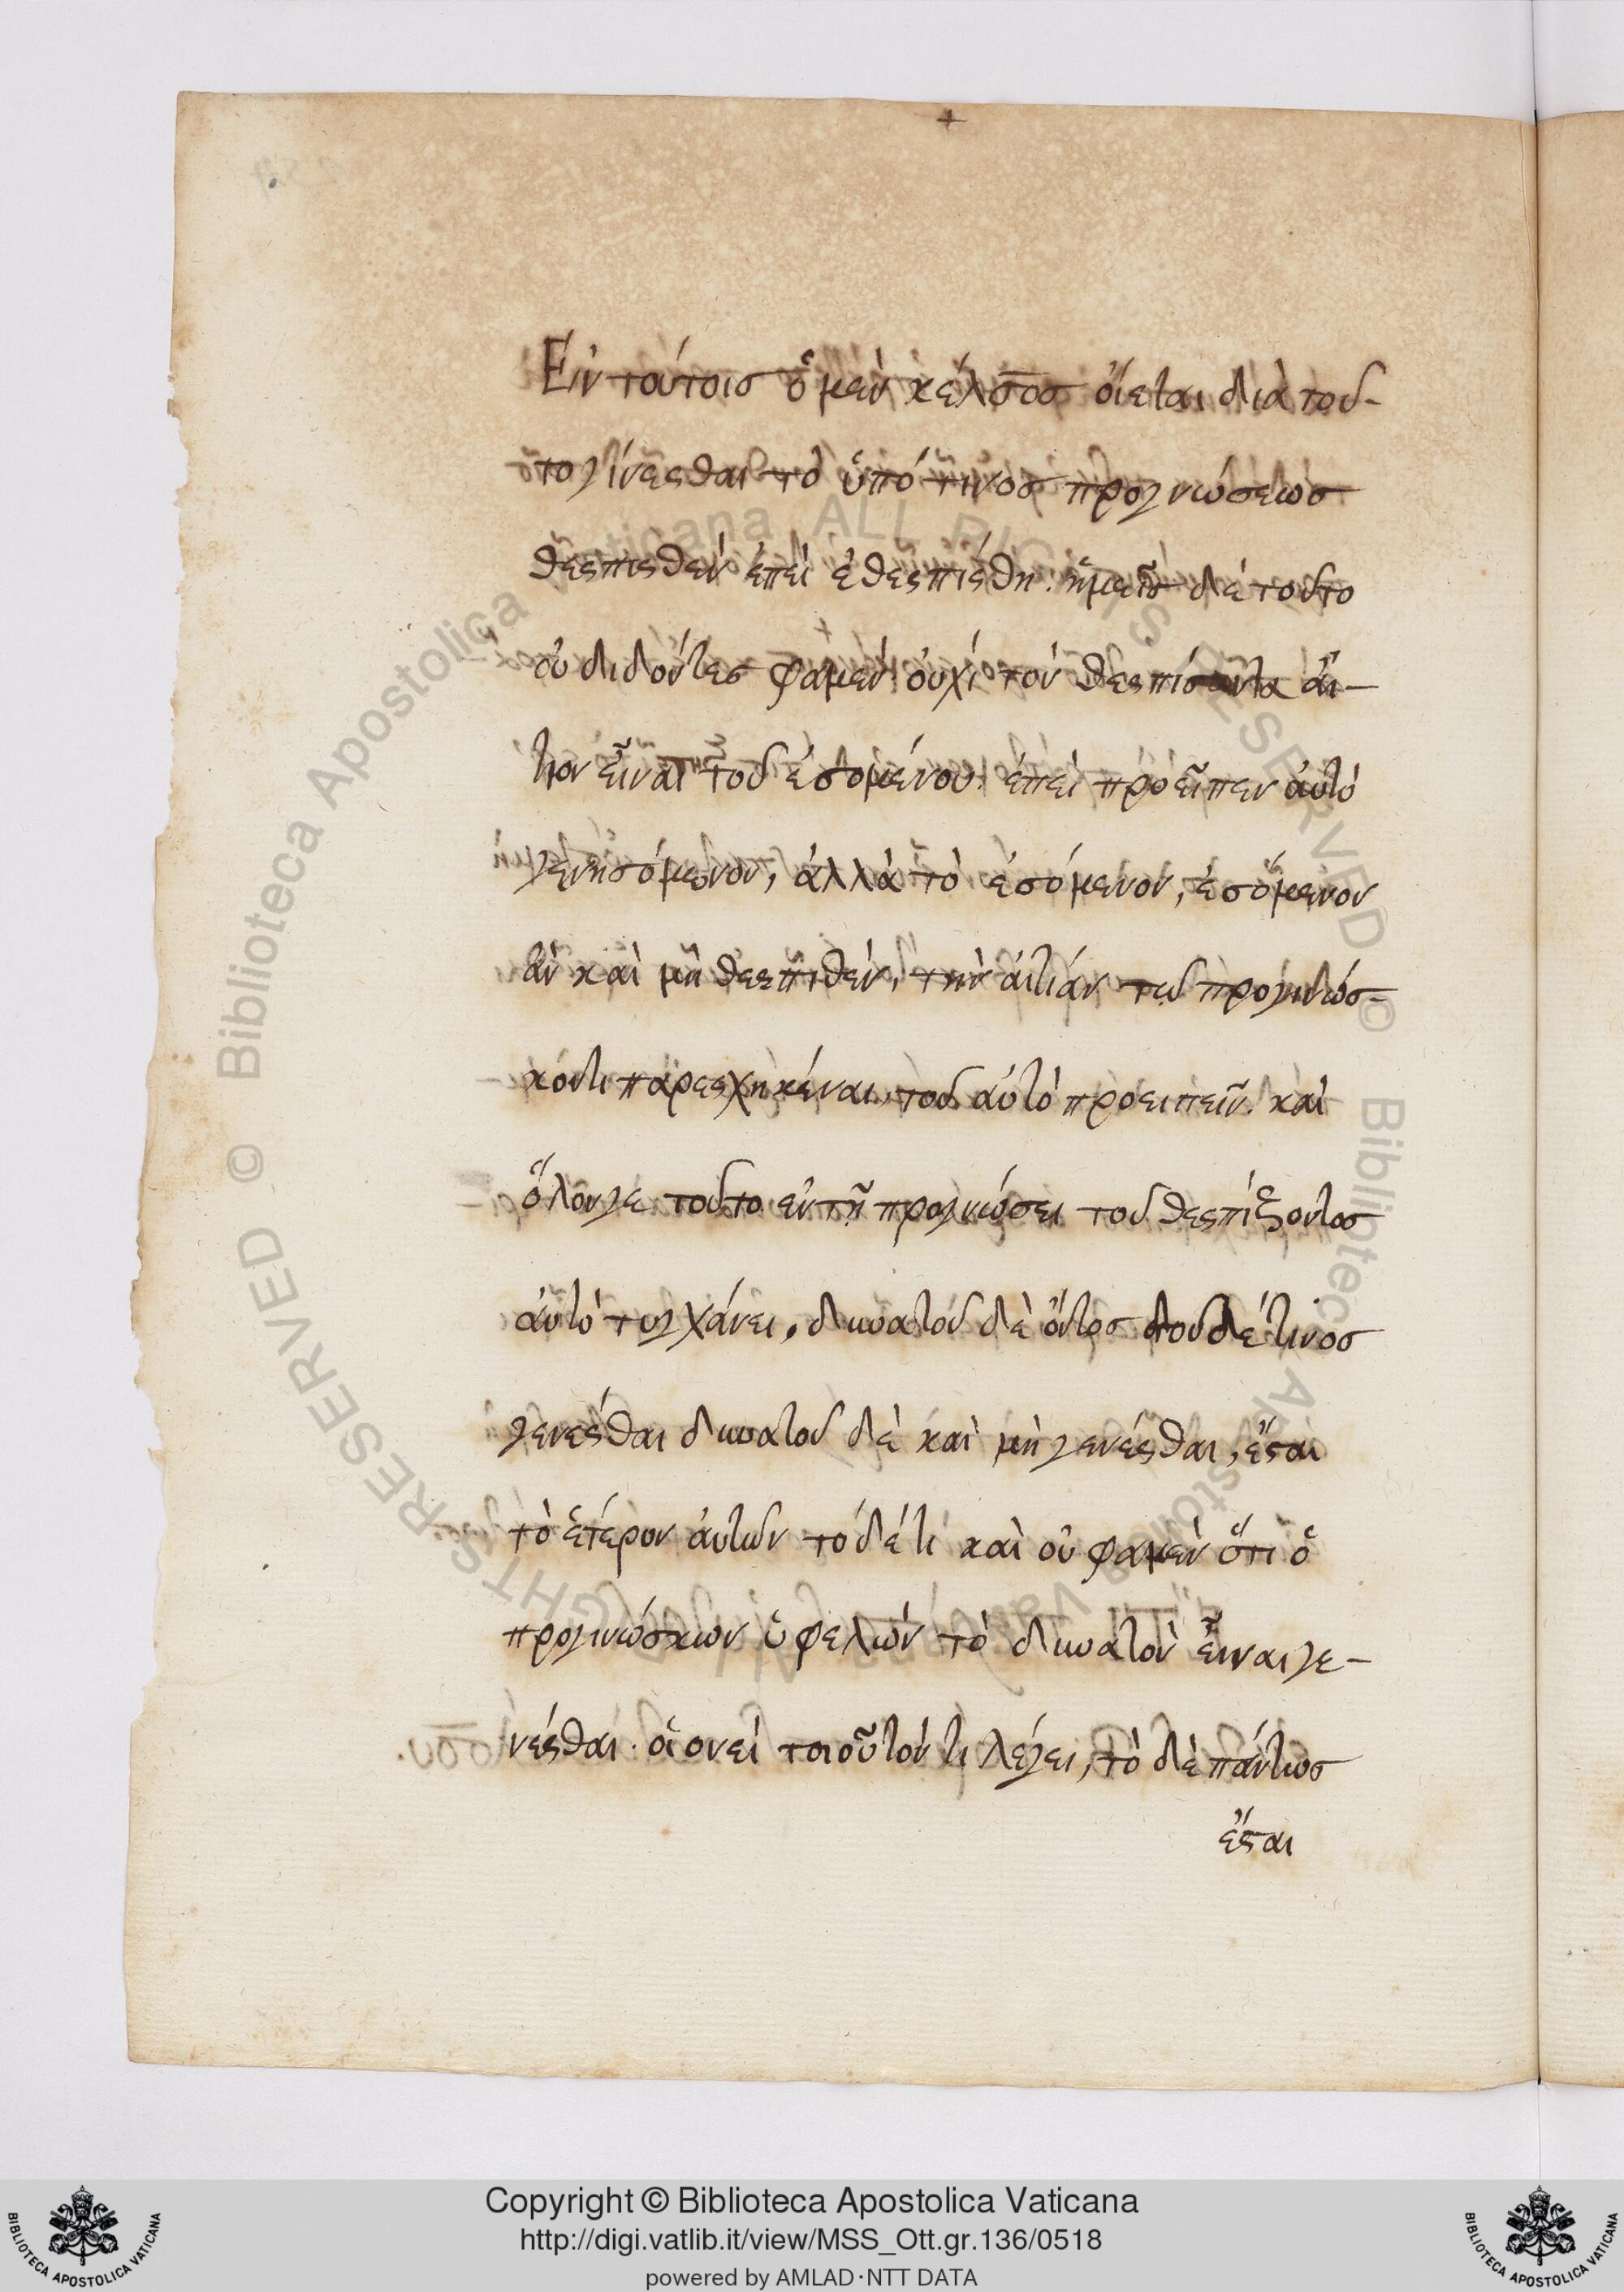 Ἐν τούτοις ὁ μὲν κέλσος οἴεται διὰ τοῦ-
το γίνεσθαι τὸ ὑπό τινος προγνώσεως
θεσπισθὲν ἐπεὶ ἐθεσπίσθη. ἡμεῖς δὲ τοῦτο
οὐ διδόντες φαμὲν οὐχὶ τὸν θεσπίσαντα αἴ-
τιον εἶναι τοῦ ἐσομένου. ἐπεὶ προεῖπεν αὐτὸ
γενησόμενον, ἀλλὰ τὸ ἐσόμενον, ἐσόμενον
ἂν καὶ μὴ θεσπισθέν, τὴν αἰτίαν τῷ προγινώσ-
κοντι παρεσχηκέναι, τοῦ αὐτὸ προειπεῖν. καὶ
ὅλον γε τοῦτο ἐν τῇ προγνώσει τοῦ θεσπίζοντος
αὐτὸ τυγχάνει, δυνατοῦ δὲ ὄντος τοῦ δέ τινος
γενέσθαι δυνατοῦ δὲ καὶ μὴ γενέσθαι, ἔσται
τὸ ἕτερον αὐτῶν τὸ δέ τι καὶ οὔ φαμεν ὅτι ὁ
προγινώσκων ὑφελὼν τὸ δυνατὸν εἶναι γε-
νέσθαι. οἱονεὶ τοιοῦτόν τι λέγει, τὸ δὲ πάντως
ἔσται
© Biblioteca Apostolica Vaticana ALL RIGHTS RESERVED © Biblioteca Apostolica Vaticana ALL RIGHTS RESERVED
BIBLIOTECA APOSTOLICA VATICANA
Copyright © Biblioteca Apostolica Vaticana
http://digi.vatlib.it/view/MSS_Ott.gr.136/0518
powered by AMLAD·NTT DATA
BIBLIOTECA APOSTOLICA VATICANA